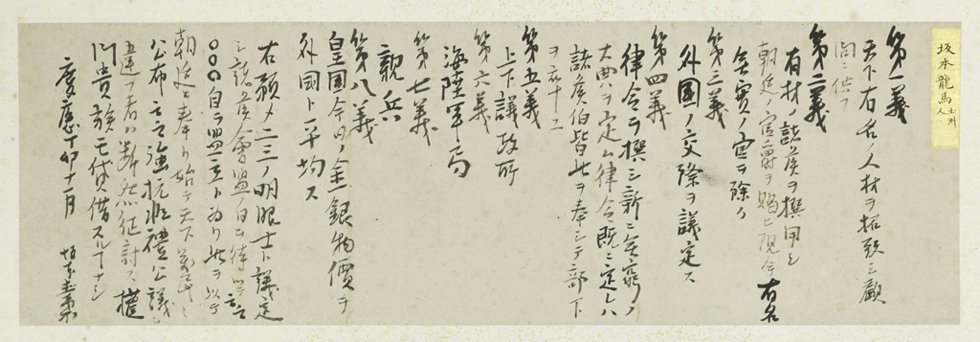 坂本龍馬 土州人
第一義
天下有名ノ人材ヲ招致シ顧
問ニ供フ
第二義
有材ノ諸侯ヲ撰用シ
朝廷ノ官爵ヲ賜ヒ現今有名
無実ノ官ヲ除ク
第三義
外国ノ交際ヲ議定ス
第四義
律令ヲ撰シ新ニ無窮ノ
大典ヲ定ム律令既ニ定レハ
諸侯伯皆此ヲ奉シテ部下
ヲ率ユ
第五義
上下議政所
第六義
海陸軍局
第七義
親兵
第八義
皇国今日ノ金銀物価ヲ
外国ト平均ス
右預メ二三ノ明眼士ト議定
シ諸侯会盟ノ日ヲ待ツテ云云
○○○自ラ盟主ト為リ此ヲ以テ
朝廷ニ奉リ始テ天下萬民ニ
公布云云強抗非禮公議ニ
違フ者ハ断然征討ス權
門貴族モ貸借スルコトナシ
慶應丁卯十一月 坂本直柔